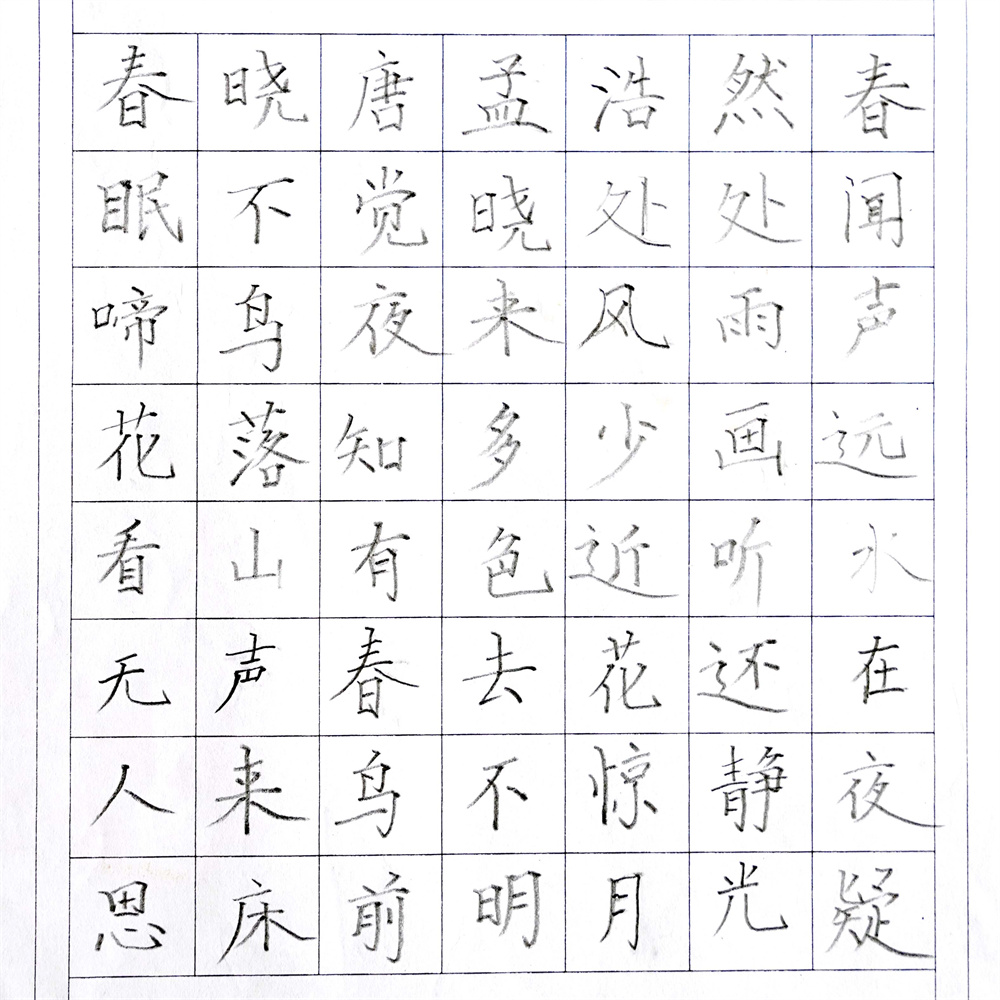 春晓唐孟浩然春
眠不觉晓处处闻
啼鸟夜来风雨声
花落知多少画远
看山有色近听水
无声春去花还在
人来鸟不惊静夜
思床前明月光疑